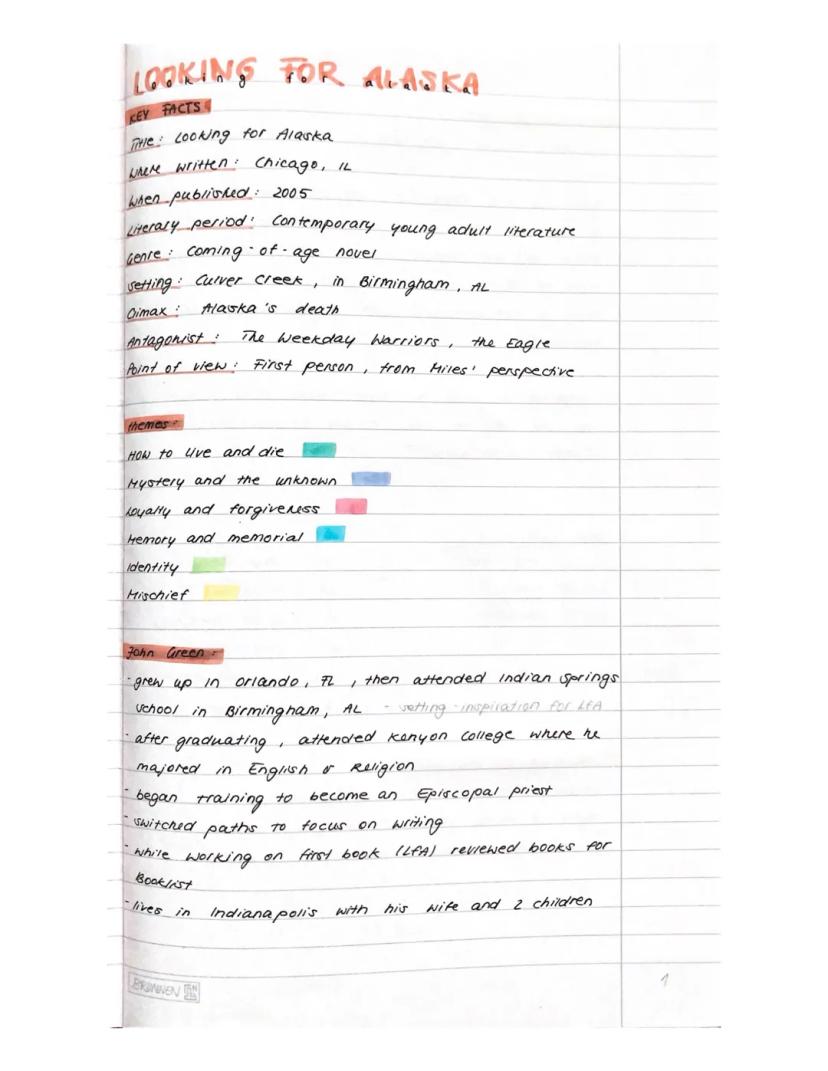 LOOKING FOR ALASKA
Looking for alaska
KEY FACTS
Title: Looking for Alaska
Where written: Chicago, IL
When published: 2005
Literary period: Contemporary young adult literature
Genre: Coming-of-age novel
Setting: Culver Creek, in Birmingham, AL
Climax: Alaska's death
Antagonist: The Weekday Warriors, the Eagle
Point of view: First person, from Miles' perspective
themes:
How to live and die
Mystery and the unknown
Loyalty and forgiveness
Memory and memorial
Identity
Mischief
John Green:
- grew up in Orlando, FL, then attended Indian Springs
School in Birmingham, AL - setting inspiration for LFA
- after graduating, attended Kenyon College where he
majored in English & Religion
- began training to become an Episcopal priest
- switched paths to focus on writing
- while working on first book (LFA) reviewed books for
Booklist
- lives in Indianapolis with his wife and 2 children
BRUNNEN
1